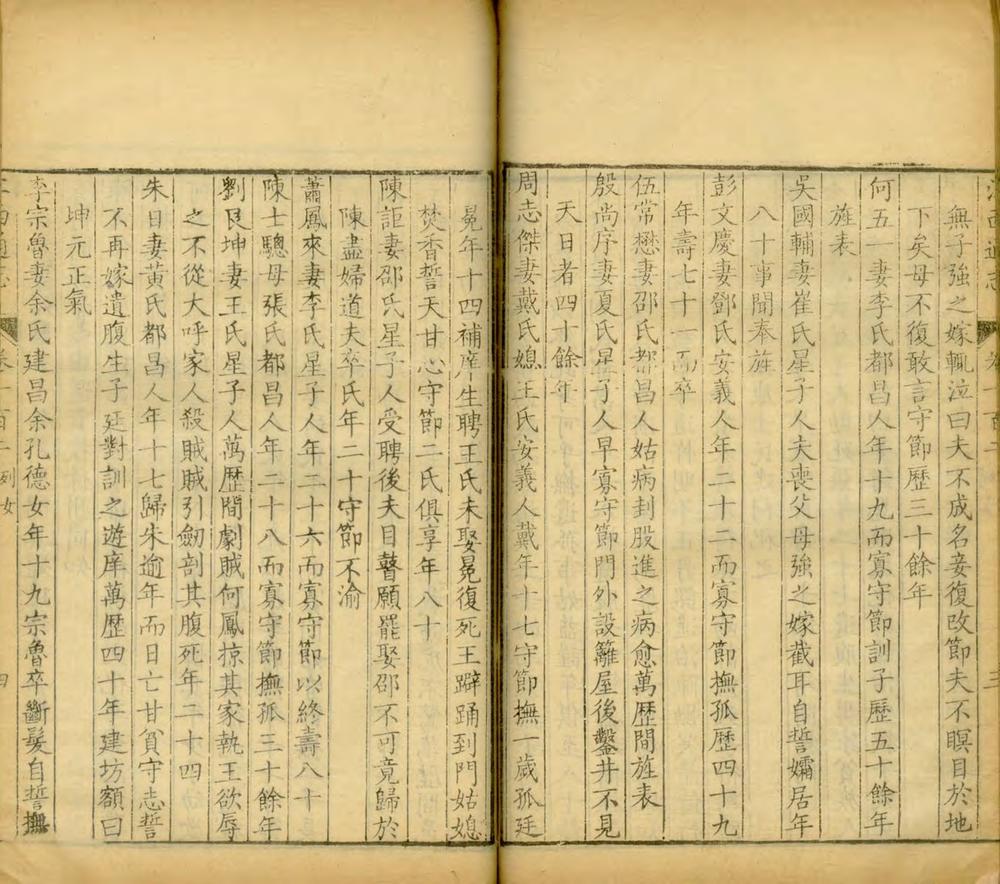 西通志
卷一百二
三
無子強之嫁輒泣曰夫不成名妾復改節夫不瞑目於地
下矣母不復敢言守節歷三十餘年
何五一妻李氏都昌人年十九而寡守節訓子歷五十餘年
旌表
吳國輔妻崔氏星子人夫喪父母強之嫁截耳自誓孀居年
八十事聞奉旌
彭文慶妻鄧氏安義人年二十二而寡守節撫孤歷四十九
年壽七十一而卒
伍常懋妻邵氏都昌人姑病刲股進之病愈萬歷間旌表
殷尚序妻夏氏星子人早寡守節門外設籬屋後鑿井不見
天日者四十餘年
周志傑妻戴氏媳王氏安義人戴年十七守節撫一歲孤廷
冕年十四補庠生聘王氏未娶冕復死王躃踊到門姑媳
焚香誓天甘心守節二氏俱享年八十
陳詎妻邵氏星子人受聘後夫目瞽願罷娶邵不可竟歸於
陳盡婦道夫卒氏年二十守節不渝
蕭鳳來妻李氏星子人年二十六而寡守節以終壽八十
陳士驄母張氏都昌人年二十八而寡守節撫孤三十餘年
劉艮坤妻王氏星子人萬歷間劇賊何鳳掠其家執王欲辱
之不從大呼家人殺賊賊引劒剖其腹死年二十四
朱日妻黃氏都昌人年十七歸朱逾年而日亡甘貧守志誓
不再嫁遺腹生子廷對訓之遊庠萬歷四十年建坊額曰
坤元正氣
李宗魯妻余氏建昌余孔德女年十九宗魯卒斷髮自誓撫
西通志
卷一百二
列女
四